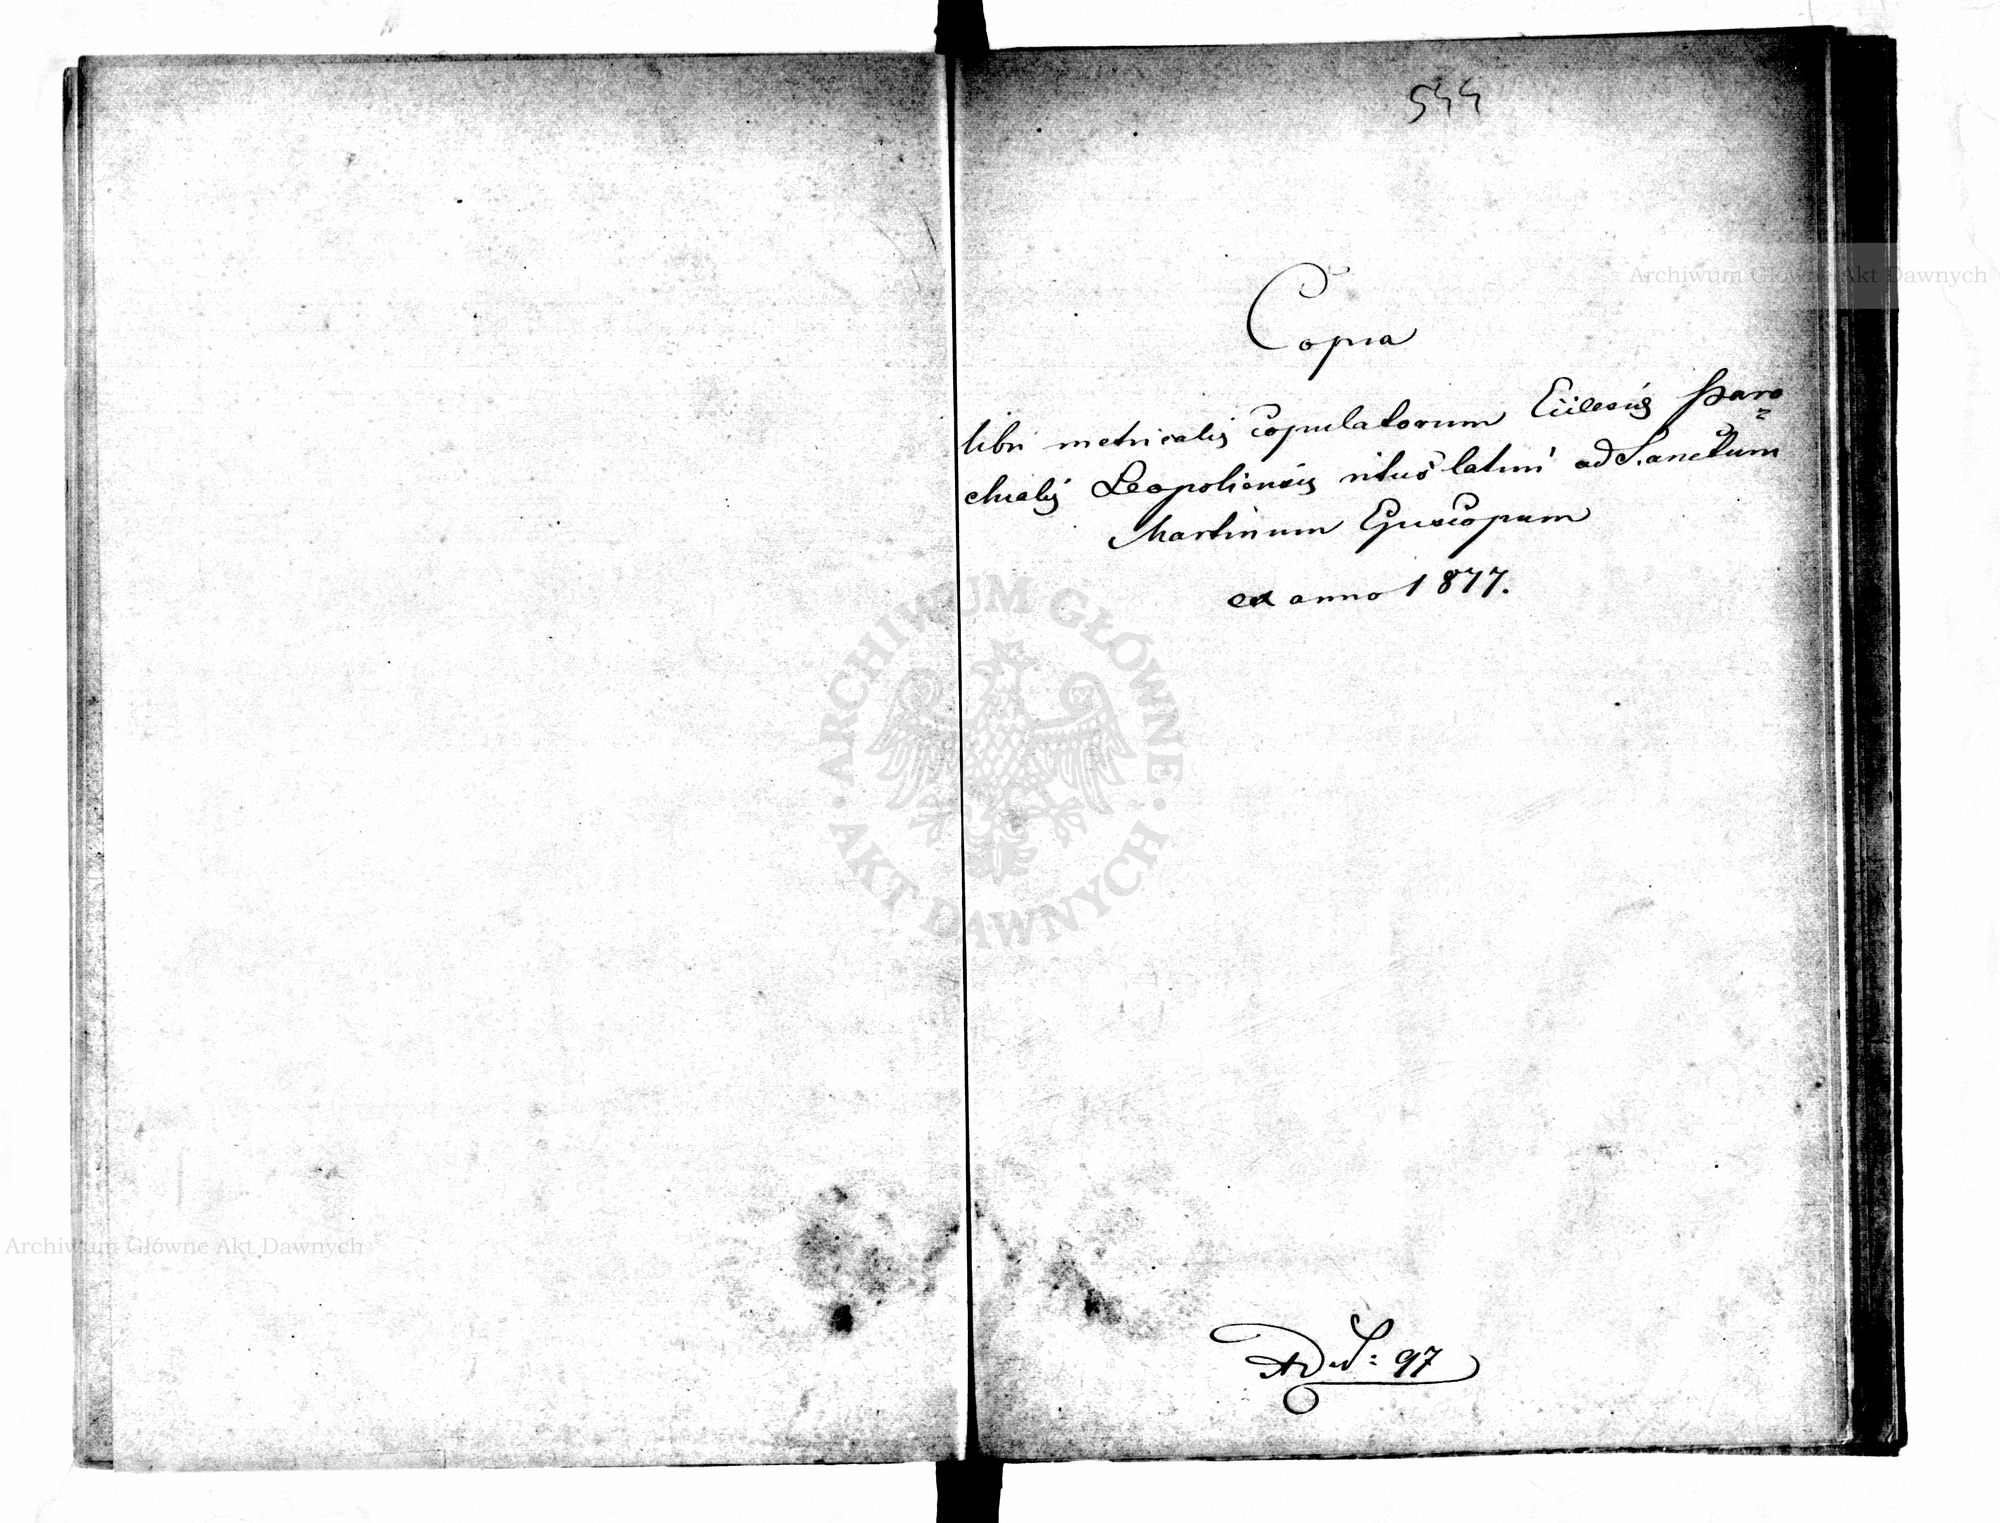 544
Archiwum Główne Akt Dawnych
Copia
libri metricalis Copulatorum Ecclesiae Paro=
chialis Leopoliensis ritus latini ad Sanctum
Martinum Episcopum
ex anno 1877.
ARCHIWUM GŁÓWNE
AKT DAWNYCH
Archiwum Główne Akt Dawnych
97